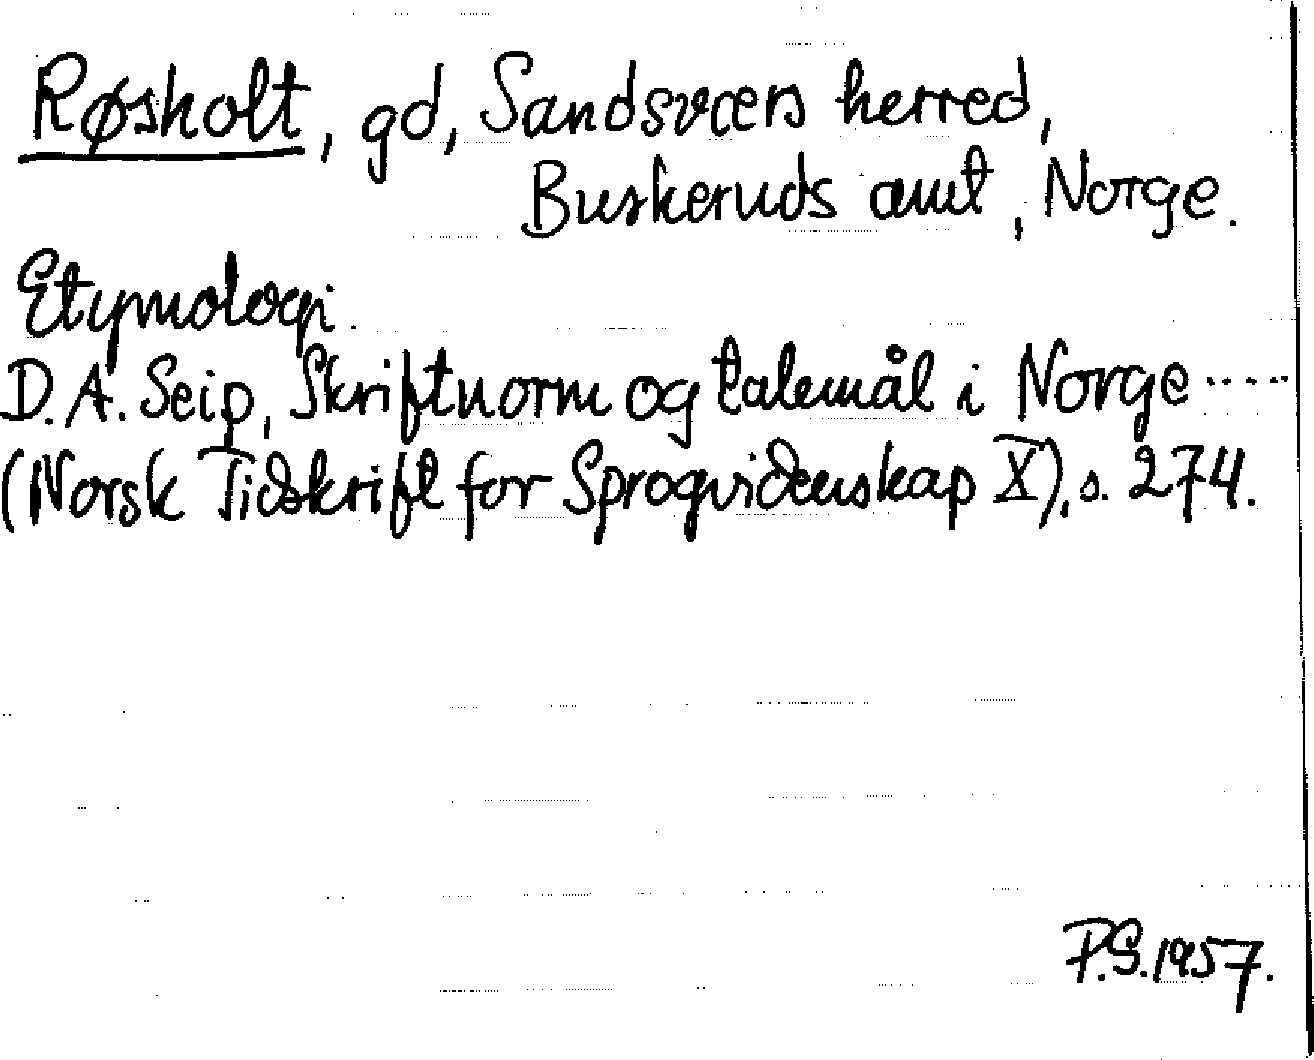 Røsholt, gd, Sandsværs herred,
Buskeruds amt, Norge.
Etymologi.
D. A. Seip, Skriftnorm og talemål i Norge .....
(Norsk Tidskrift for Sprogvidenskap X), s. 274.
P.S. 1957.